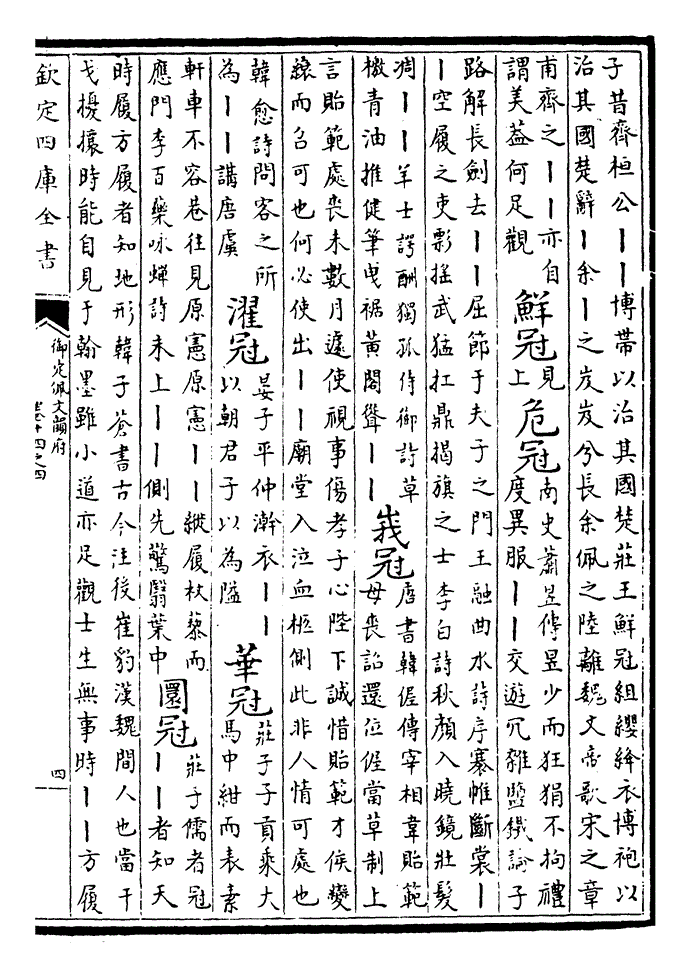 子昔齊桓公丨丨博帶以治其國楚莊王鮮冠組纓絳衣博袍以
治其國楚辭丨余丨之岌岌兮長余佩之陸離魏文帝歌宋之章
甫齊之丨丨亦自
謂美葢何足觀
鮮冠
見
上
危冠
南史蕭昱傳昱少而狂狷不拘禮
度異服丨丨交遊冗雜鹽鐵論子
路解長劍去丨丨屈節于夫子之門王融曲水詩序褰帷斷裳丨
丨空履之吏彯搖武猛扛鼎揭旗之士李白詩秋顏入曉鏡壯髮
凋丨丨羊士諤酬獨孤侍御詩草
檄青油推健筆曳裾黃閣聳丨丨
峩冠
唐書韓偓傳宰相韋貽範
母喪詔還位偓當草制上
言貽範處喪未數月遽使視事傷孝子心陛下誠惜貽範才俟變
縗而召可也何必使出丨丨廟堂入泣血柩側此非人情可處也
韓愈詩問客之所
為丨丨講唐虞
濯冠
晏子平仲澣衣丨丨
以朝君子以為隘
華冠
莊子子貢乘大
馬中紺而表素
軒車不容巷往見原憲原憲丨丨縱履杖藜而
應門李百藥咏蟬詩未上丨丨側先驚翳葉中
圜冠
莊子儒者冠
丨丨者知天
時履方履者知地形韓子蒼書古今注後崔豹漢魏間人也當干
戈擾攘時能自見于翰墨雖小道亦足觀士生無事時丨丨方履
欽定四庫全書
御定佩文韻府
卷十四之四
四